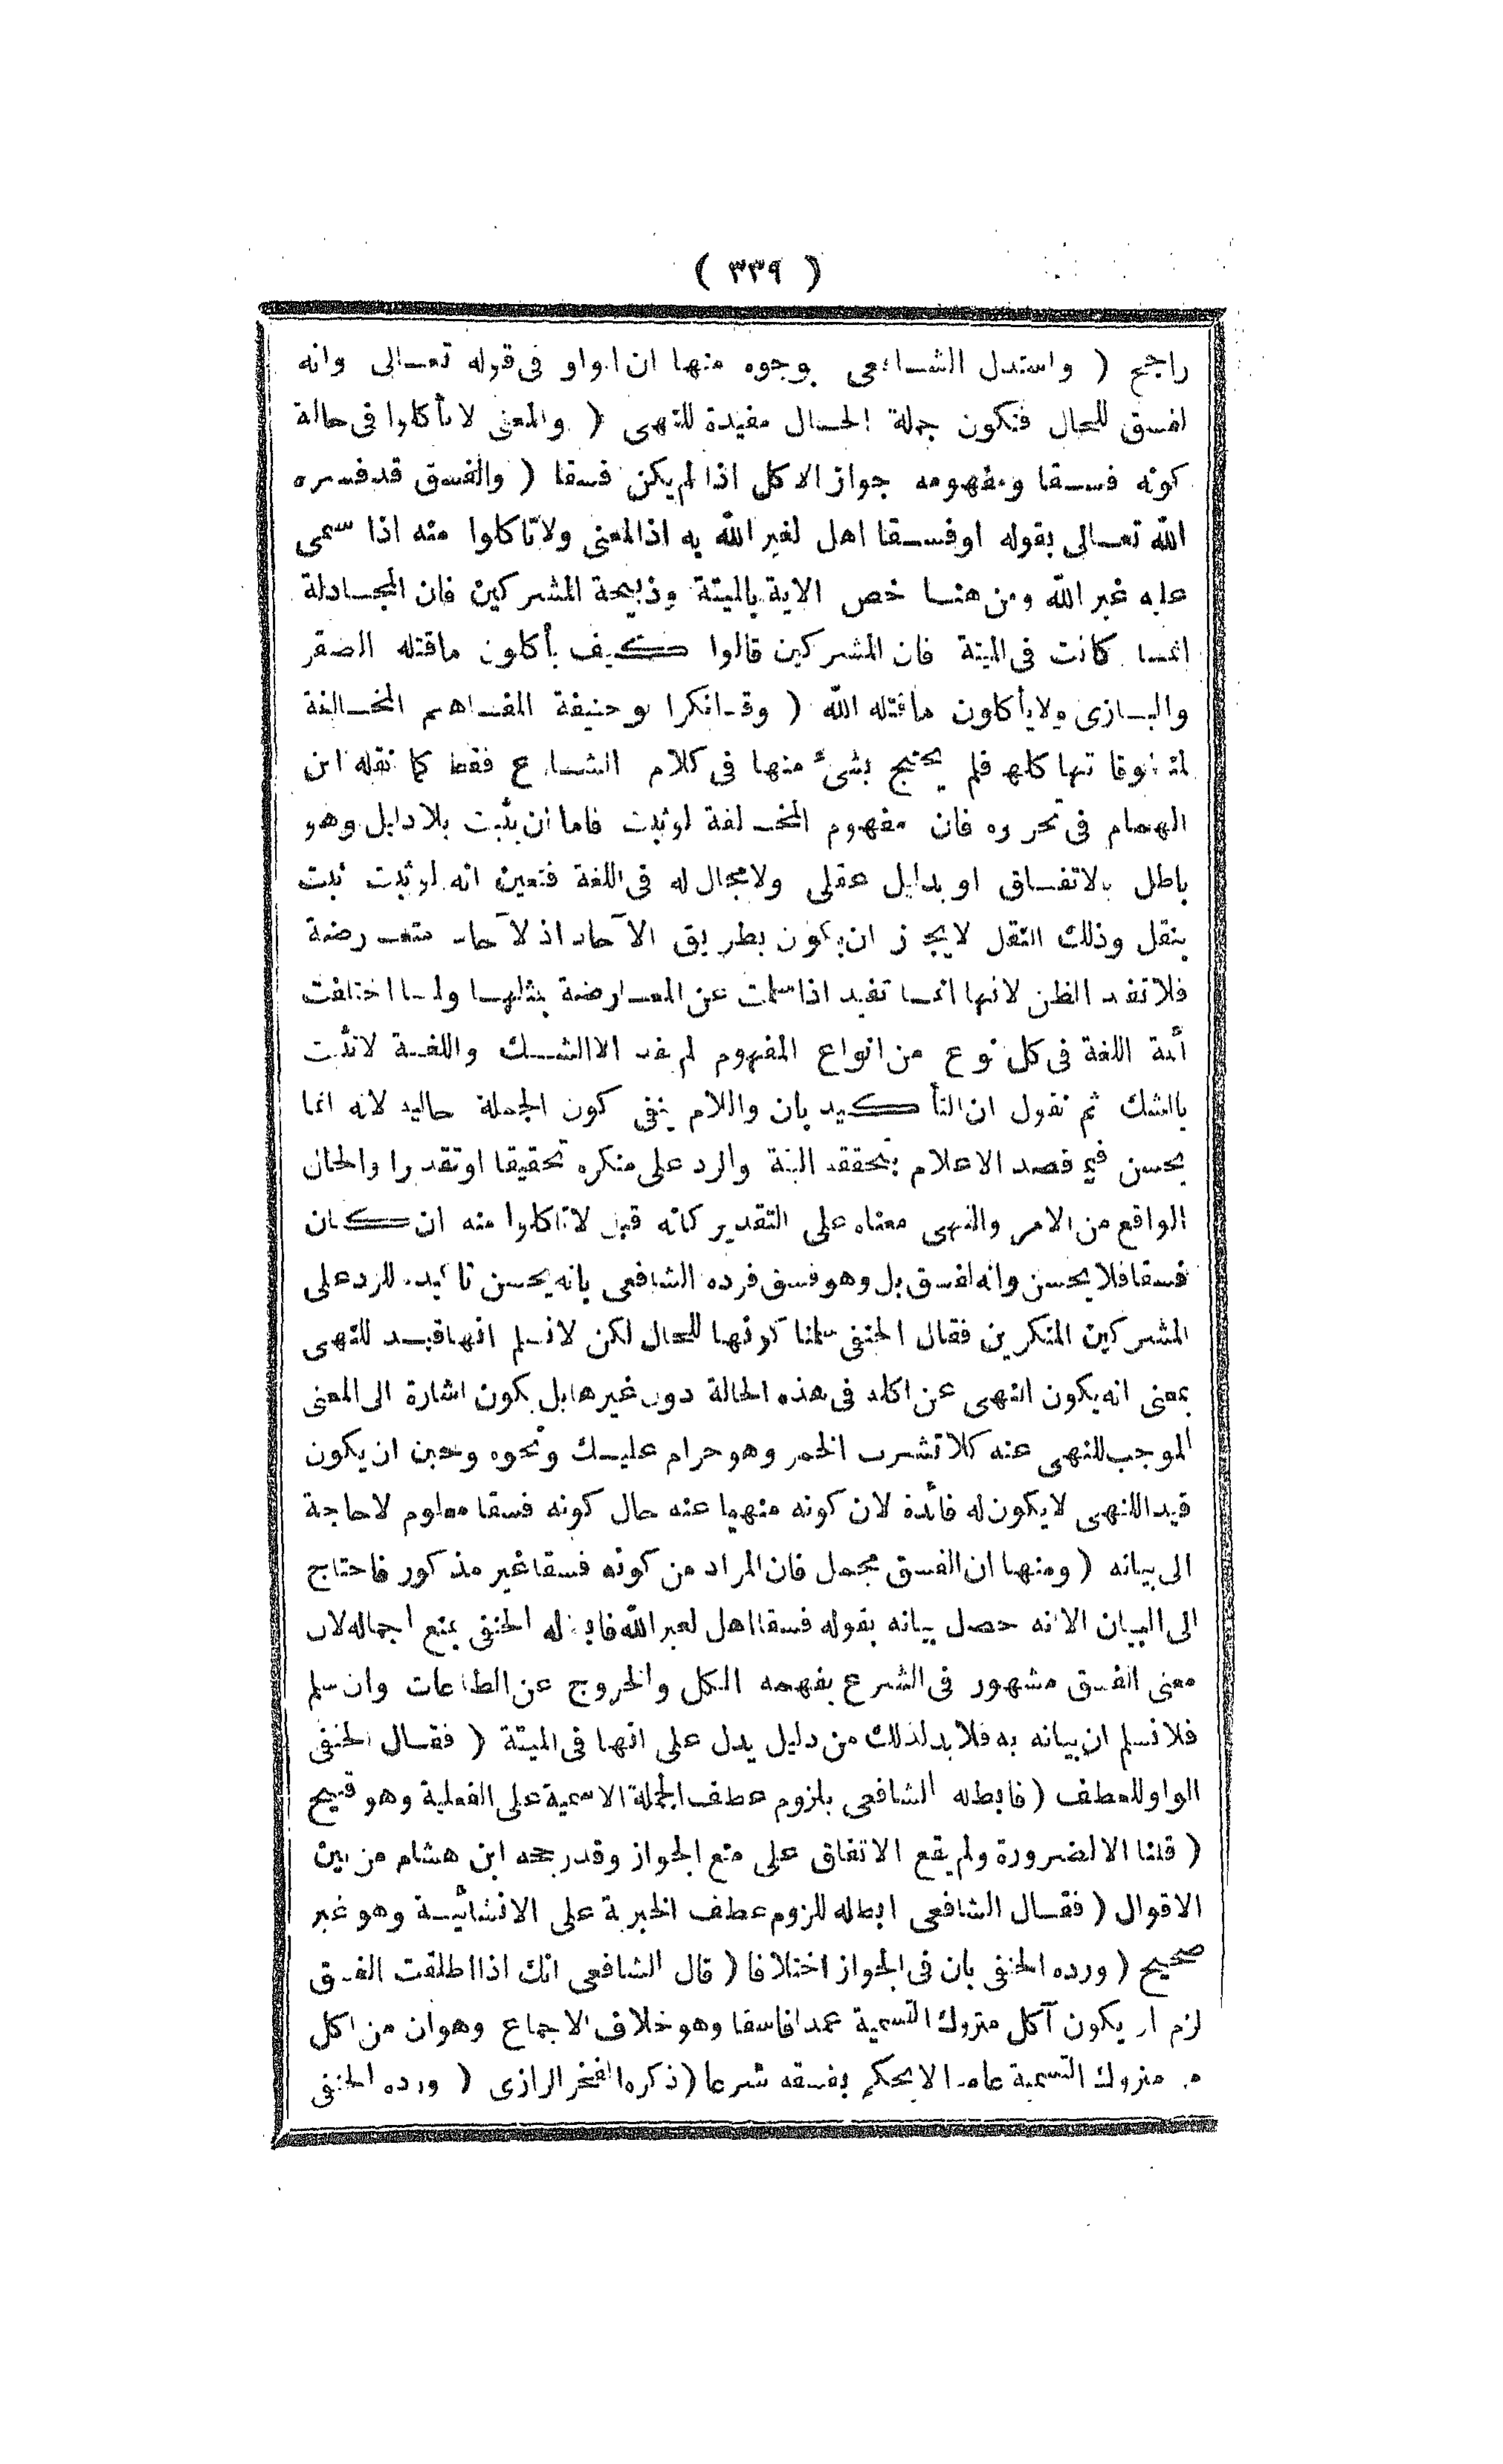 ( ٣٣٩ )
راجح ( واستدل الشافعى بوجوه منها ان الواو فى قوله تعالى وانه
لفسق للحال فتكون جملة الحال مفيدة للنهى ( والمعنى لا تأكلوا فى حالة
كونه فسقا ومفهومه جواز الاكل اذا لم يكن فسقا ( والفسق قد فسره
الله تعالى بقوله او فسقا اهل لغير الله به اذ المعنى ولا تاكلوا منه اذا سمى
عليه غير الله ومن هنا خص الاية بالميتة وذبيحة المشركين فان المجادلة
انما كانت فى الميتة فان المشركين قالوا كيف يأكلون ماقتله الصقر
والبازى ولا يأكلون ماقتله الله ( وقد انكر ابو حنيفة المفاهيم المخالفة
لمنطوقاتها كلها فلم يحتج بشئ منها فى كلام الشارع فقط كما نقله ابن
الهمام فى تحريره فان مفهوم المخالفة لو ثبت فاما ان يثبت بلا دليل وهو
باطل بالاتفاق او بدليل عقلى ولا مجال له فى اللغة فتعين انه لو ثبت ثبت
بنقل وذلك النقل لا يجوز ان يكون بطريق الآحاد اذ الآحاد متعارضة
فلا تفيد الظن لانها انما تفيد اذا سلمت عن المعارضة بمثلها ولما اختلفت
أئمة اللغة فى كل نوع من انواع المفهوم لم يفد الا الشك واللغة لا تثبت
بالشك ثم نقول ان التأكيد بان واللام ينفى كون الجملة حاليه لانه انما
يحسن فيما قصد الاعلام بتحققه البتة والرد على منكره تحقيقا او تقديرا والحال
الواقع من الامر والنهى معناه على التقدير كانه قيل لا تاكلوا منه ان كان
فسقا فلا يحسن وانه لفسق بل وهو فسق فرده الشافعى بانه يحسن تاكيده للرد على
المشركين المنكرين فقال الحنفى سلمنا كونها للحال لكن لانسلم انها قيد للنهى
بمعنى انه يكون النهى عن اكله فى هذه الحالة دون غيرها بل يكون اشارة الى المعنى
الموجب للنهى عنه كلا تشرب الخمر وهو حرام عليك ونحوه وحين ان يكون
قيدا للنهى لا يكون له فائدة لان كونه منهيا عنه حال كونه فسقا معلوم لا حاجة
الى بيانه ( ومنها ان الفسق مجمل فان المراد من كونه فسقا غير مذكور فاحتاج
الى البيان الا انه حصل بيانه بقوله فسقا اهل لغير الله فابطله الحنفى بمنع اجماله لان
معنى الفسق مشهور فى الشرع يفهمه الكل والخروج عن الطاعات وان سلم
فلا نسلم ان بيانه به فلا بد لذلك من دليل يدل على انها فى الميتة ( فقال الحنفى
الواو للعطف ( فابطله الشافعى بلزوم عطف الجملة الاسمية على الفعلية وهو قبيح
( قلنا الا لضرورة ولم يقع الاتفاق على منع الجواز وقد رجحه ابن هشام من بين
الاقوال ( فقال الشافعى ابطاله للزوم عطف الخبرية على الانشائية وهو غير
صحيح ( ورده الحنفى بان فى الجواز اختلافا ( قال الشافعى انك اذا اطلقت الفسق
لزم ان يكون آكل متروك التسمية عمدا فاسقا وهو خلاف الاجماع وهو ان من اكل
متروك التسمية عامدا لا يحكم بفسقه شرعا ( ذكره الفخر الرازى ( ورده الحنفى